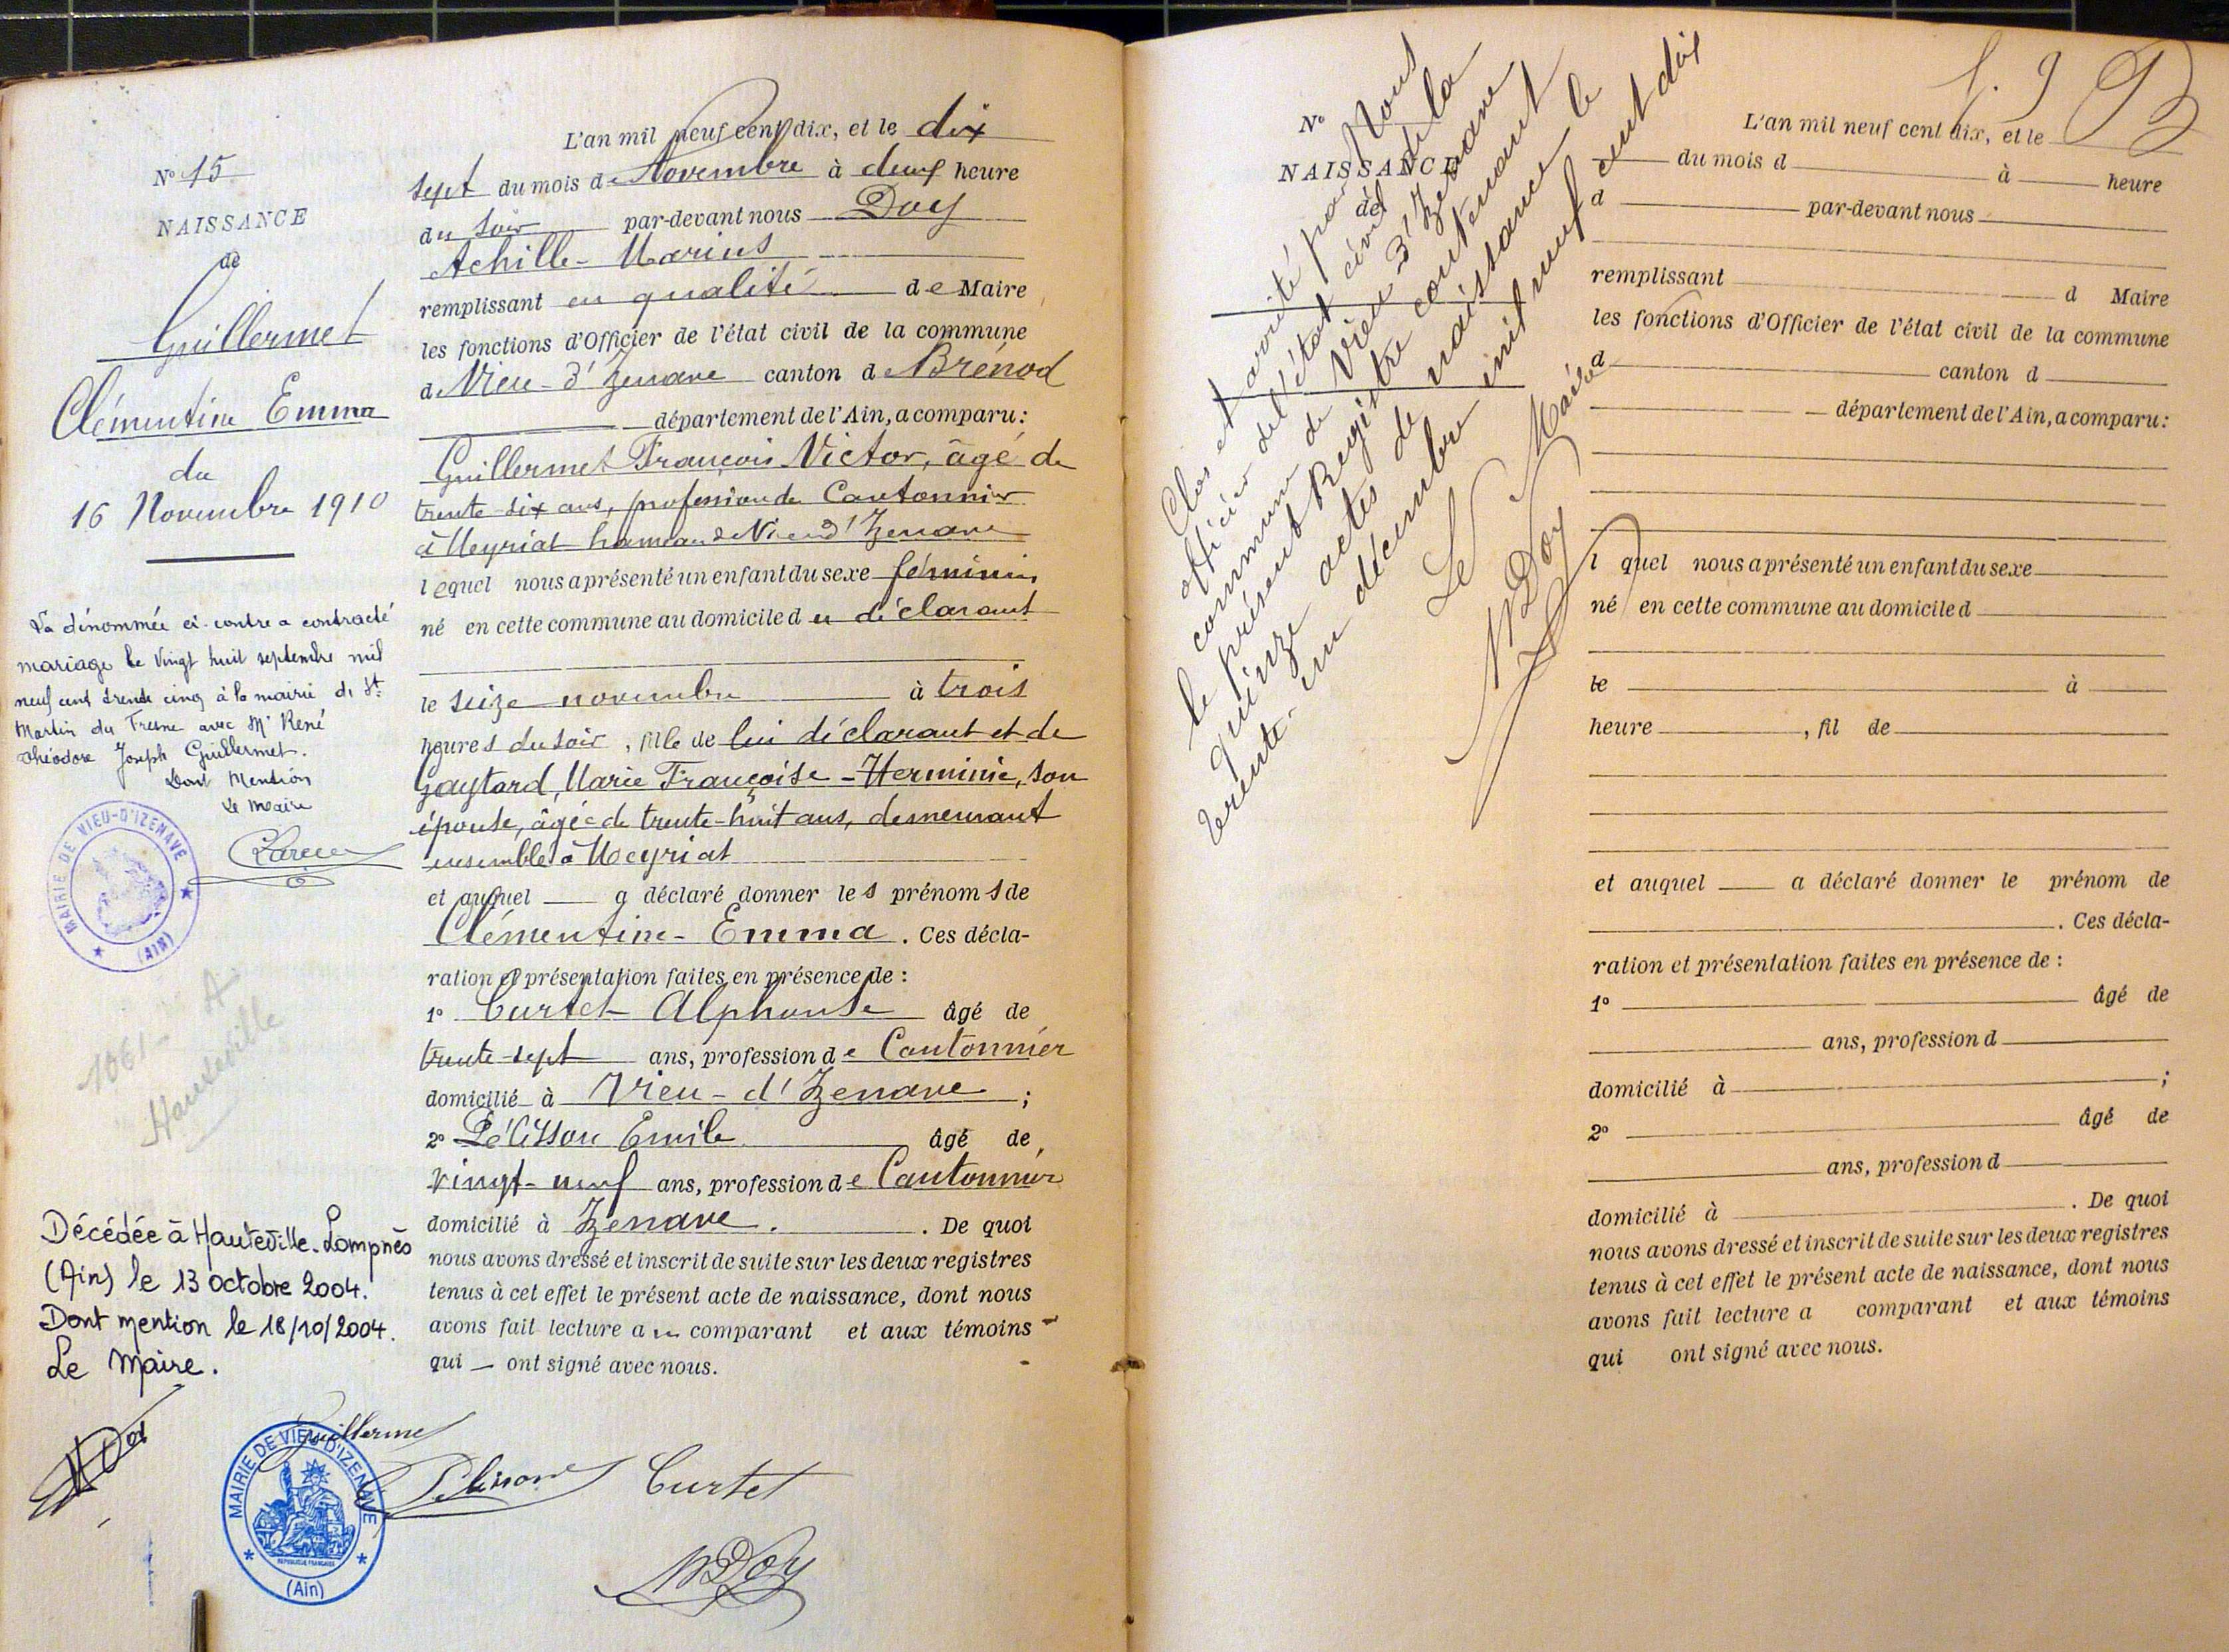 N° 15
NAISSANCE
de
Guillermet
Clémentine Emma
du
16 Novembre 1910
La dénommée ci-contre a contracté
mariage le vingt huit septembre mil
neuf cent trente cinq à la mairie de St
Martin du Fresne avec Mr René
Théodore Joseph Guillermet.
Dont Mention
Le Maire
MAIRIE DE VIEU-D'IZENAVE
(AIN)
Hauteville
Décédée à Hauteville-Lompnès
(Ain) le 13 octobre 2004.
Dont mention le 18/10/2004.
Le Maire.
L'an mil neuf cent dix, et le dix
sept du mois de Novembre à deux heure
du soir par-devant nous Doy
Achille-Marius
remplissant en qualité de Maire
les fonctions d'Officier de l'état civil de la commune
d Vieu-d'Izenave canton de Brénod
département de l'Ain, a comparu:
Guillermet François Victor, âgé de
trente-six ans, profession de Cantonnier
à Meyriat hameau de Vieu d'Izenave
lequel nous a présenté un enfant du sexe féminin
né en cette commune au domicile du déclarant
le seize novembre à trois
heures du soir, fille de lui déclarant et de
Marie Françoise-Herminie, son
épouse, âgée de trente-huit ans, demeurant
ensemble à Meyriat
et auquel a déclaré donner les prénoms de
Clémentine-Emma. Ces décla-
ration et présentation faites en présence de :
1° Curtet Alphonse âgé de
trente-sept ans, profession de Cantonnier
domicilié à Vieu-d'Izenave ;
2° Pélisson Emile âgé de
vingt-neuf ans, profession de Cantonnier
domicilié à Izenave. . De quoi
nous avons dressé et inscrit de suite sur les deux registres
tenus à cet effet le présent acte de naissance, dont nous
avons fait lecture au comparant et aux témoins
qui — ont signé avec nous.
Guillermet
Pelisson Curtet
Doy
MAIRIE DE VIEU-D'IZENAVE
REPUBLIQUE FRANÇAISE
(Ain)
N°
NAISSANCE
de
Clos et arrêté par Nous
officier de l'état civil de la
commune de Vieu-d'Izenave
le présent Registre contenant
quinze actes de naissance le
trente-un décembre mil neuf cent dix
Le Maire
Doy
L'an mil neuf cent dix, et le
du mois d à heure
d par-devant nous
remplissant d Maire
les fonctions d'Officier de l'état civil de la commune
d canton d
département de l'Ain, a comparu:
l quel nous a présenté un enfant du sexe
né en cette commune au domicile d
le à
heure , fil de
et auquel a déclaré donner le prénom de
. Ces décla-
ration et présentation faites en présence de :
1° âgé de
ans, profession d
domicilié à ;
2° âgé de
ans, profession d
domicilié à . De quoi
nous avons dressé et inscrit de suite sur les deux registres
tenus à cet effet le présent acte de naissance, dont nous
avons fait lecture a comparant et aux témoins
qui ont signé avec nous.